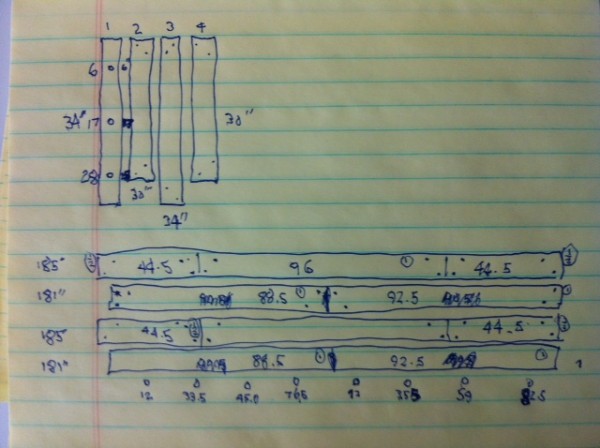 1 2 3 4
6 6
34" 17
30"
28
30"
34"
185" 44.5 96 1 44.5
181" 88.5 1 92.5
185 44.5 44.5
181" 88.5 1 92.5 1
12 33.5 59 82.5